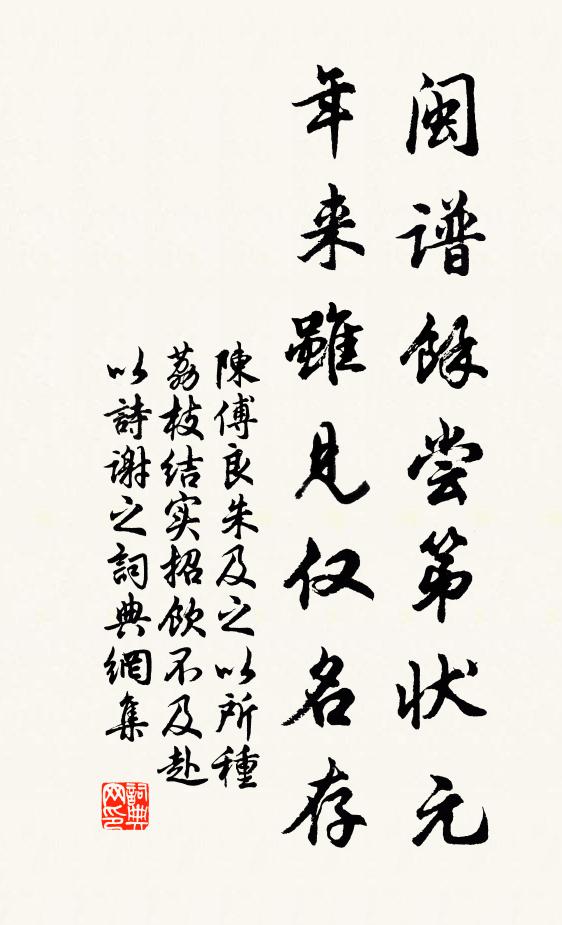 闽谱馀尝第状元
年来雖见仅名存
陳傅良朱及之以所種
荔枝结实招饮不及赴
以詩谢之詞典網集
詞典网印